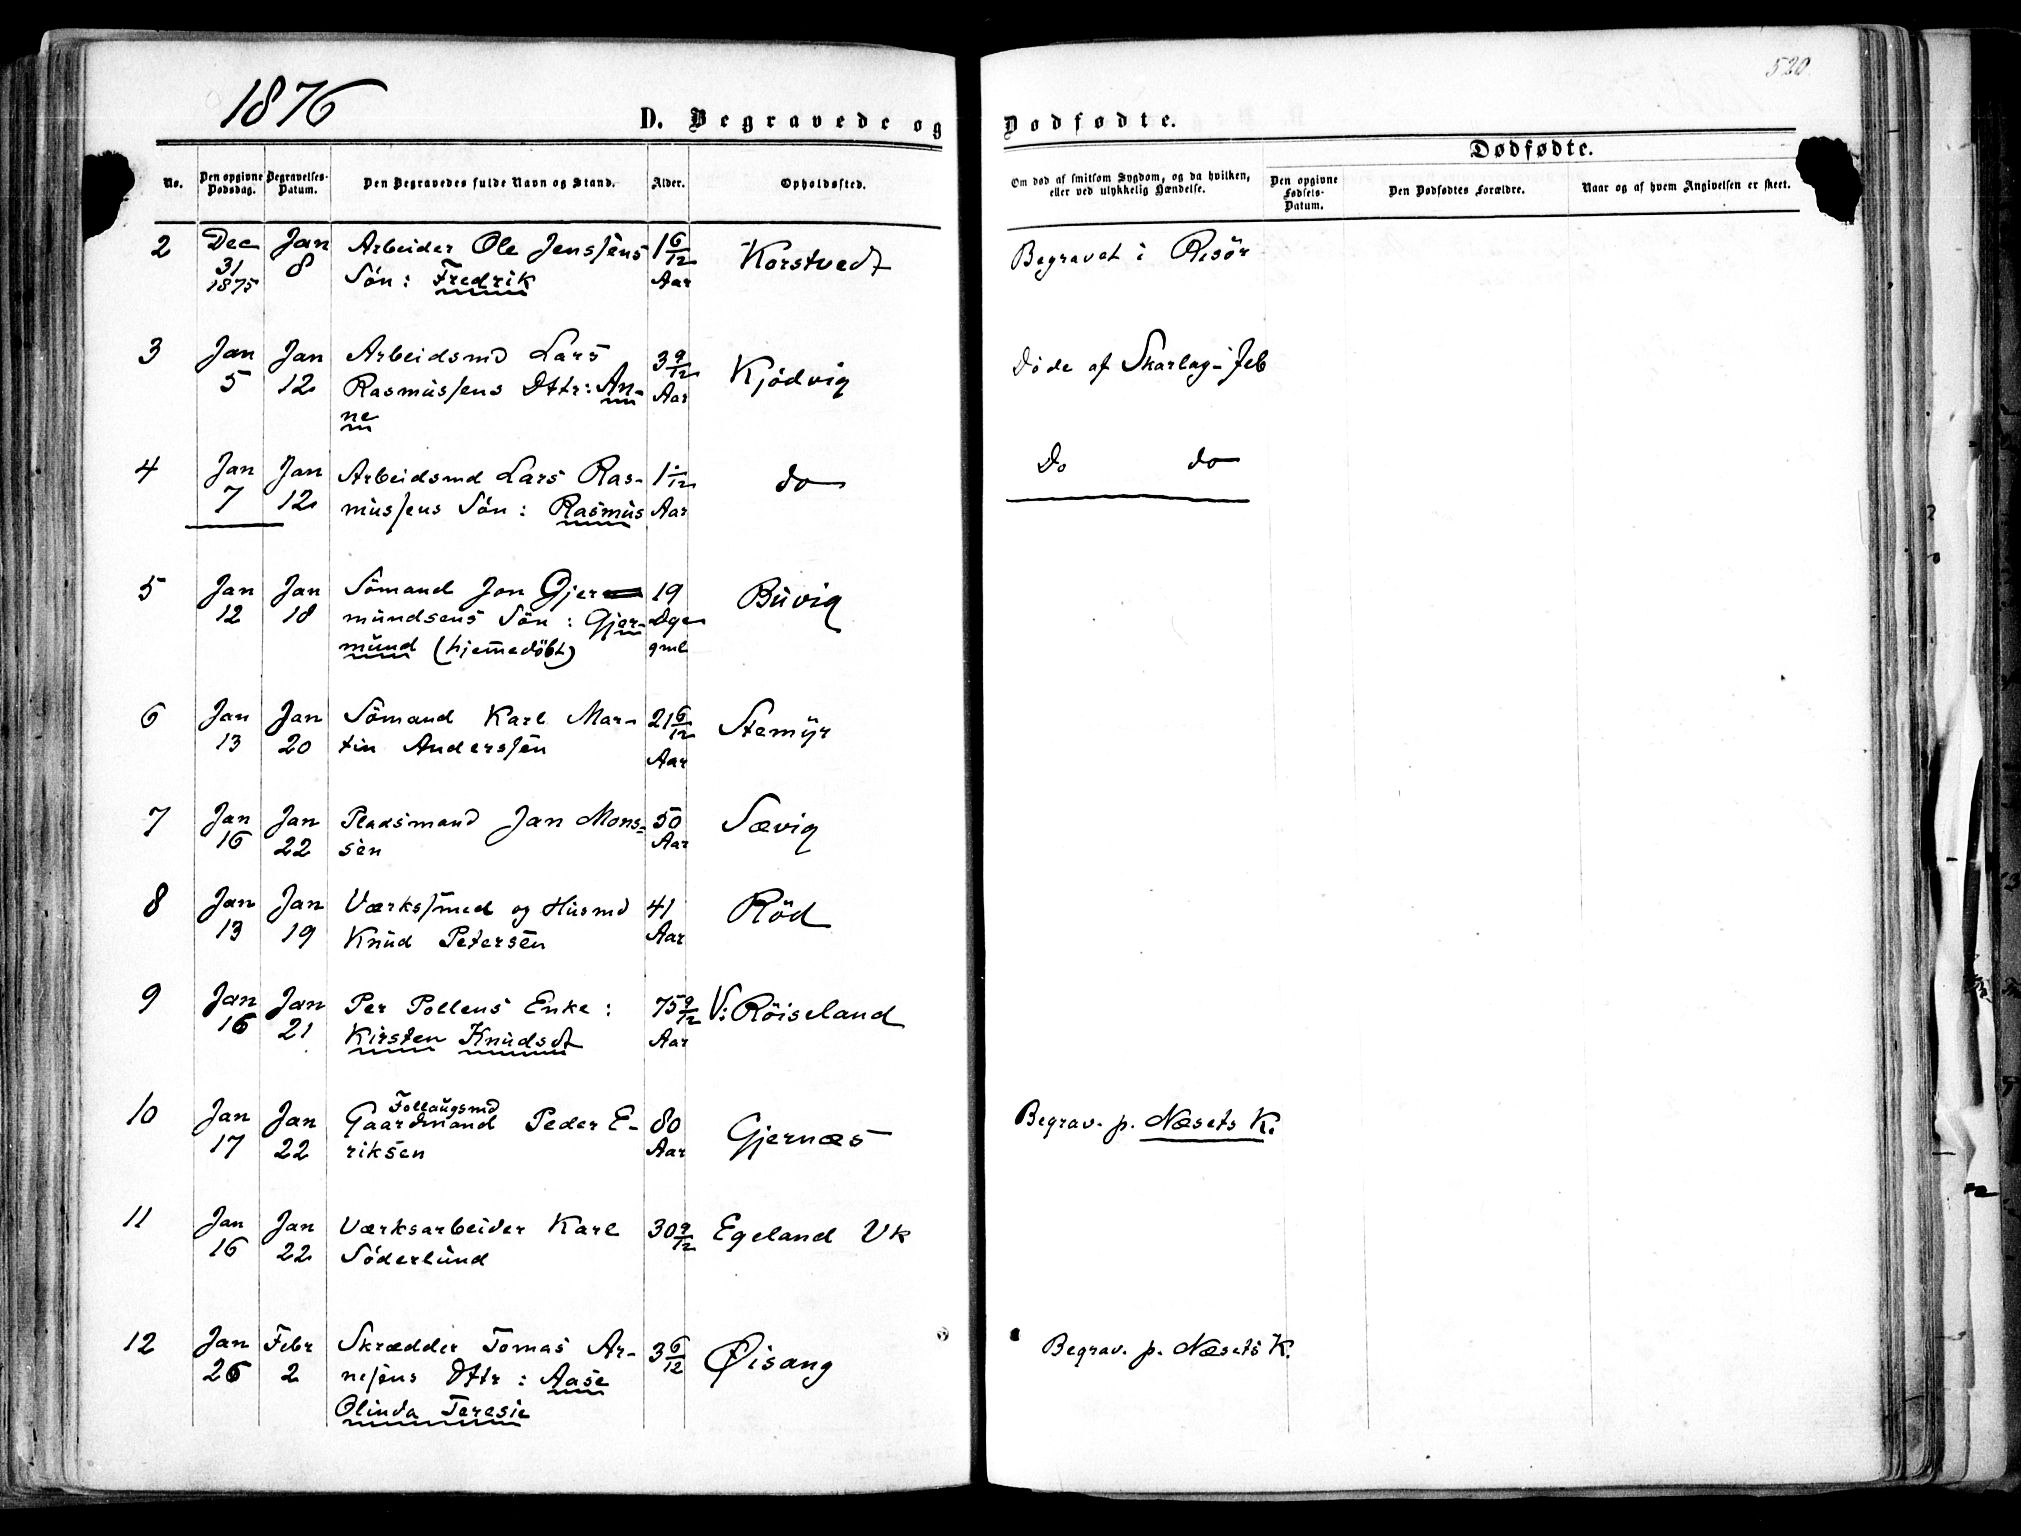 520
1876
D. Begravede og Dødfødte.
Dødfødte.
No. Den opgivne Dødsdag. Begravelses-Datum. Den Begravedes fulde Navn og Stand. Alder. Opholdssted. Om død af smitsom Sygdom, og da hvilken, eller ved ulykkelig Hændelse. Den opgivne Fødsels-Datum. Den Dødfødtes Forældre. Naar og af hvem Angivelsen er skeet.
2 Dec Jan Arbeider Ole Jenssens 1 6/12 Korstvedt Begravet i Risör
31 8 Sön: Fredrik Aar
1875
3 Jan Jan Arbeidsmd Lars 3 9/12 Kjödvig Döde af Skarlag-feb
5 12 Rasmussens Dttr: An- Aar
ne
4 Jan Jan Arbeidsmd Lars Ras- 1 1/12 do Do do
7 12 mussens Sön: Rasmus Aar
5 Jan Jan Sömand Jon Gjer 19 Buvig
12 18 mundsens Sön: Gjer- Dge
mund (hjemedöbt) gml
6 Jan Jan Sömand Karl Mar- 21 6/12 Stemyr
13 20 tin Anderssen Aar
7 Jan Jan Pladsmand Jan Mons- 50 Sævig
16 22 sen Aar
8 Jan Jan Værkssmed og Husmd 41 Röd
13 19 Knud Petersen Aar
9 Jan Jan Per Pollens Enke: 75 9/12 V: Röiseland
16 21 Kirsten Knudsdt Aar
Follaugsmd
10 Jan Jan Gaardmand Peder E- 80 Gjernæs Begrav. p. Næsets K.
17 22 riksen Aar
11 Jan Jan Værksarbeider Karl 30 9/12 Egeland Vk
16 22 Söderlund
12 Jan Febr Skrædder Tomas Ar- 3 6/12 Øisang Begrav. p. Næsets K.
26 2 nesens Dttr: Aase
Olinda Teresie